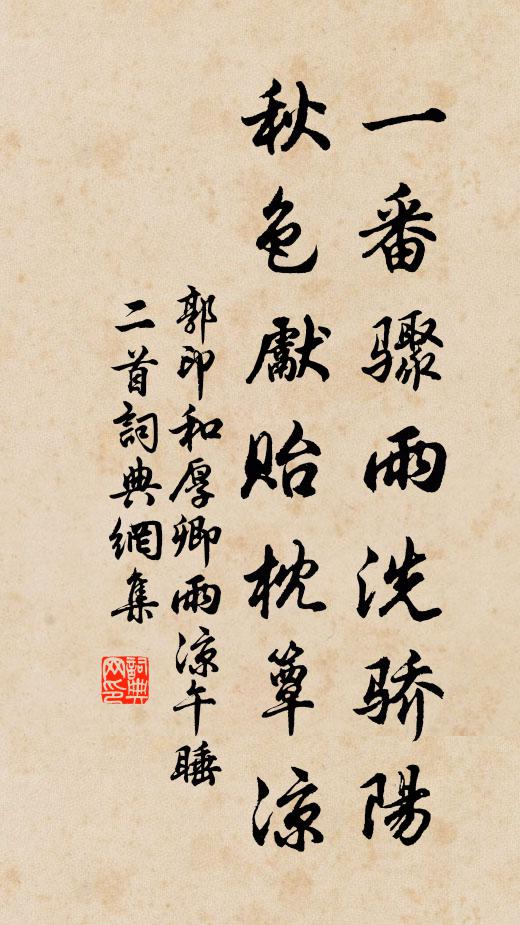 一番骤雨洗骄陽
秋色獻貽枕簟凉
郭印和厚卿雨凉午睡
二首詞典網集
詞典网印